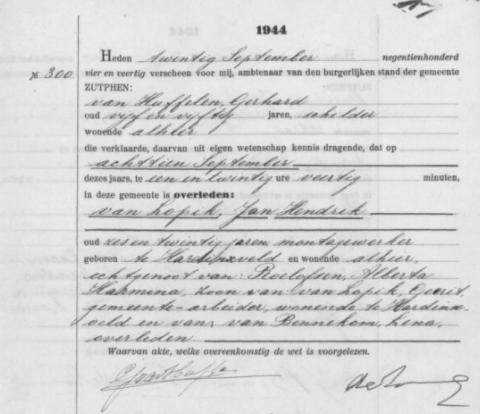 1944
Heden twintig September negentienhonderd
№ 300
vier en veertig verscheen voor mij, ambtenaar van den burgerlijken stand der gemeente
ZUTPHEN:
van Huffelen, Gerhard
oud vijf en vijftig jaren, schilder
wonende alhier
die verklaarde, daarvan uit eigen wetenschap kennis dragende, dat op
achttien September
dezes jaars, te een en twintig ure veertig minuten,
in deze gemeente is overleden:
van Lopik, Jan Hendrik
oud zes en twintig jaren, montagewerker
geboren te Hardinxveld en wonende alhier,
echtgenoot van: Roelofsen, Alberta
Harmina, zoon van: van Lopik, Gerrit,
gemeente-arbeider, wonende te Hardinx-
veld en van: van Bennekom, Lena,
overleden
Waarvan akte, welke overeenkomstig de wet is voorgelezen.